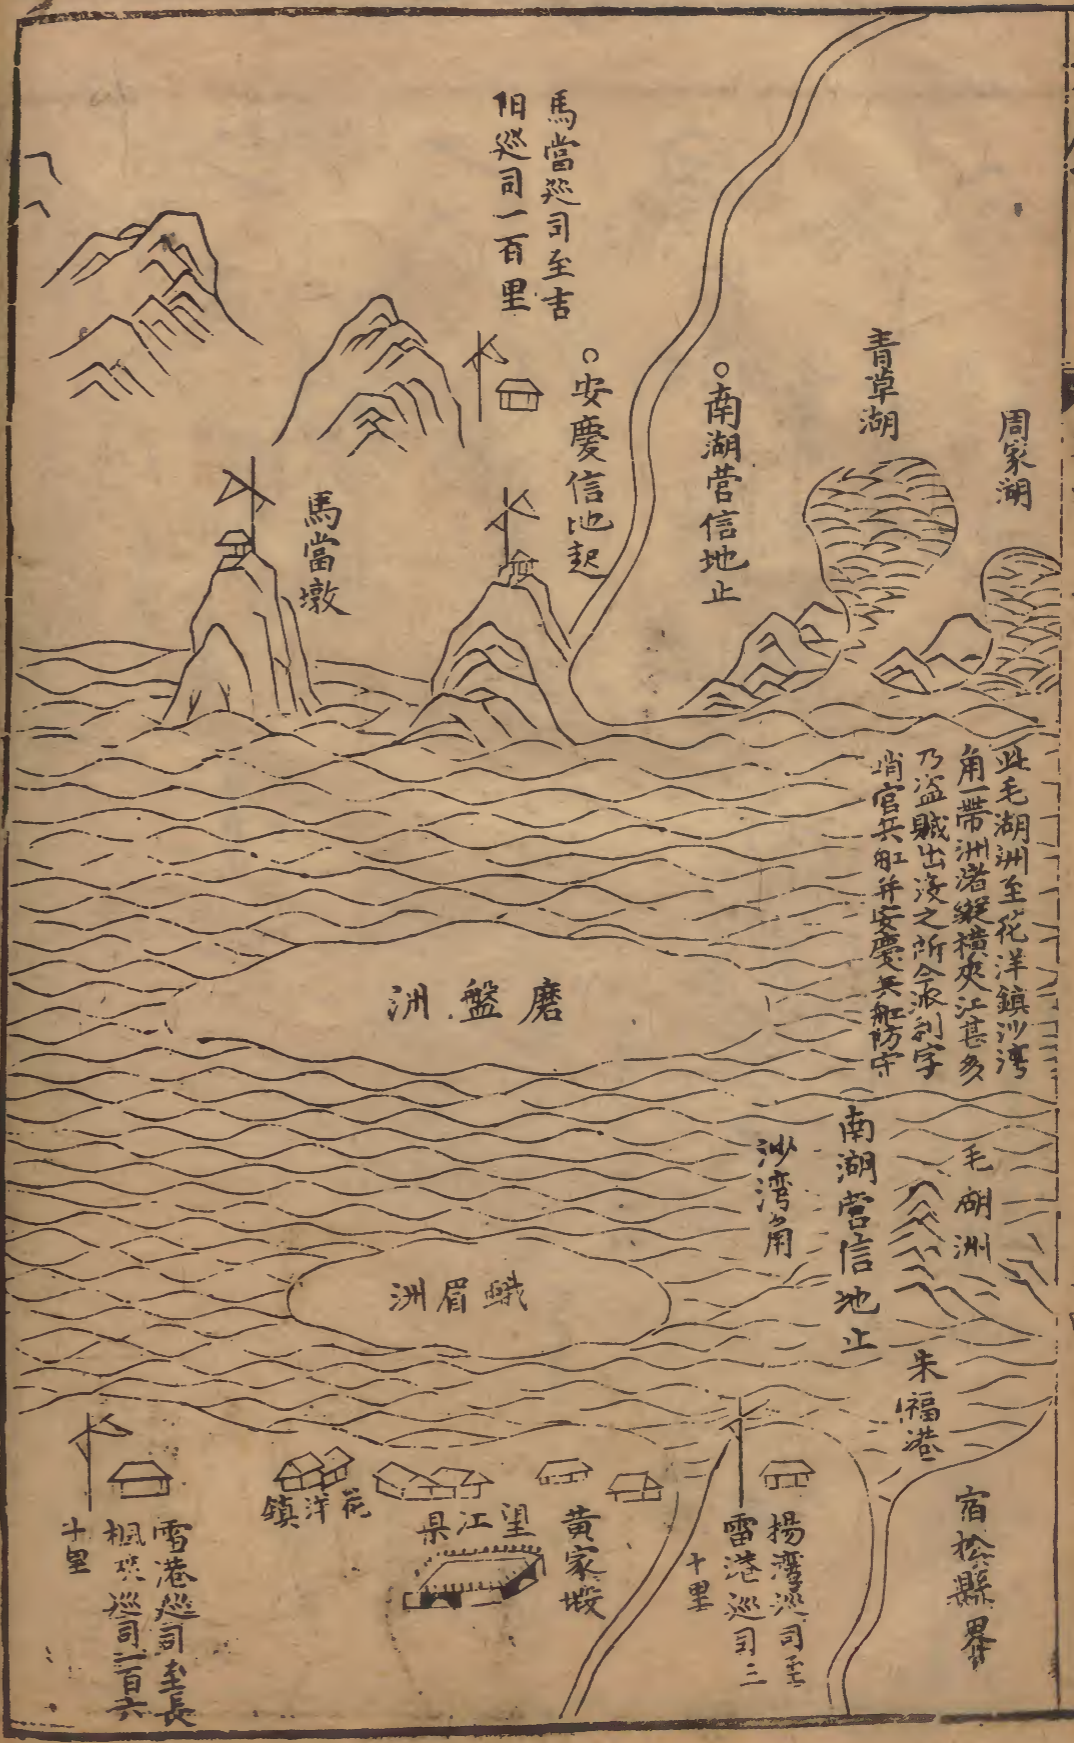 周家湖
青草湖
○南湖营信地止
○安慶信地起
馬當巡司至吉
阳巡司一百里
馬當墩
此毛湖洲至花洋鎮沙湾
角一帶洲渚縱横夾江甚多
乃盗賊出没之所今派利字
哨官兵船并安慶兵船防守
磨盤洲
毛湖洲
南湖营信地止
沙湾角
蛾眉洲
朱福港
宿松縣界
揚湾巡司至
雷港巡司三
十里
黄家塅
望江県
花洋鎮
雷港巡司至長
楓夾巡司一百六
十里